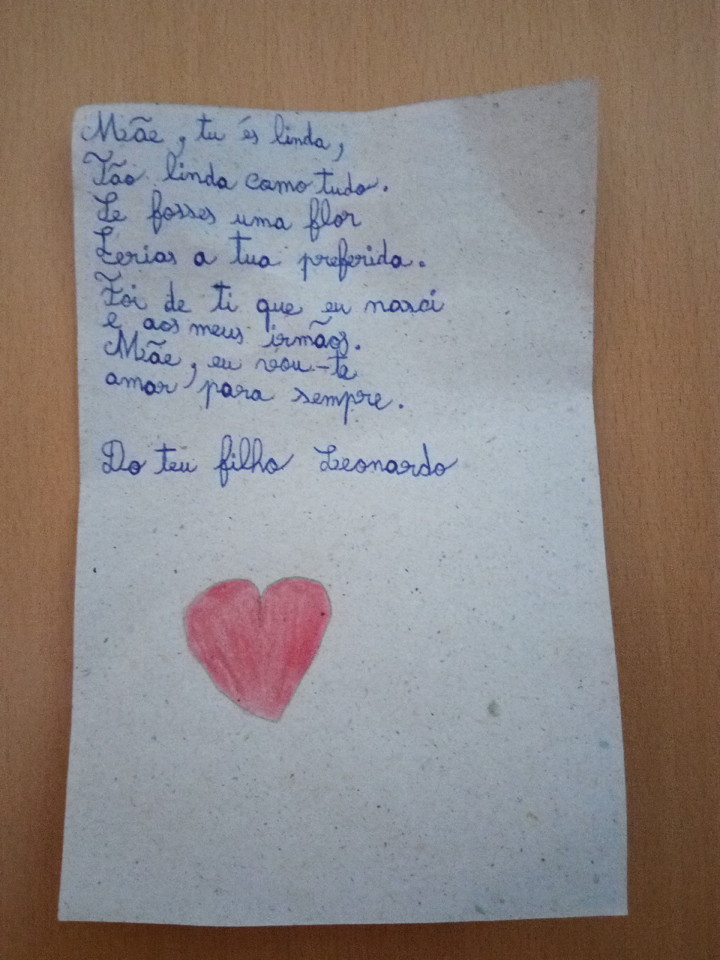 Mãe, tu és linda,
Tão linda como tudo.
Se fosses uma flor
Serias a tua preferida.
Foi de ti que eu nasci
e aos meus irmãos.
Mãe, eu vou-te
amar para sempre.
Do teu filho Leonardo